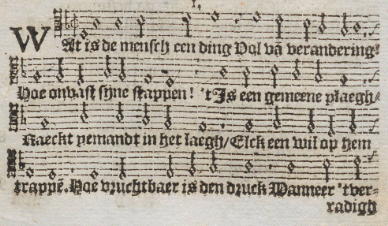 I.
WAt is de mensch een ding Vol vā verandering!
Hoe onvast sijne stappen! 'tIs een gemeene plaegh/
Raeckt yemandt in het laegh/ Elck een wil op hem
trappē. Hoe vruchtbaer is den druck Wanneer 'tver-
radigh